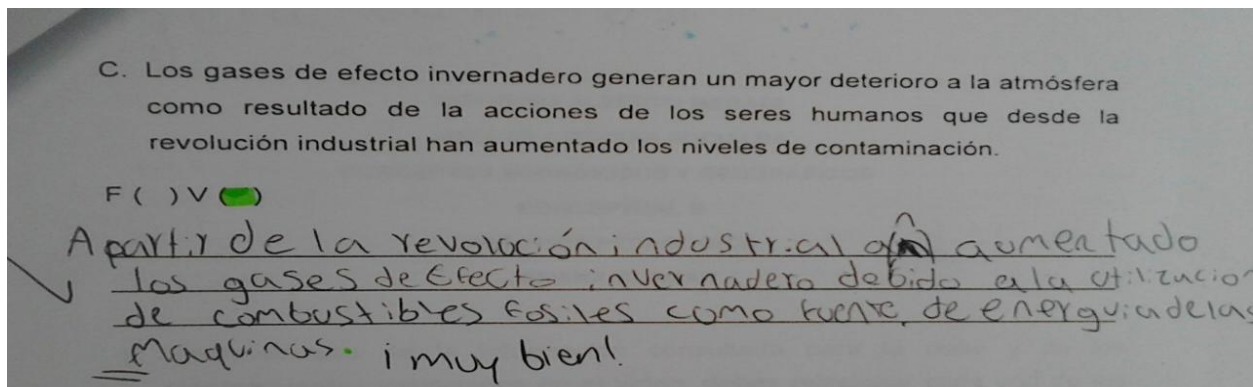 C. Los gases de efecto invernadero generan un mayor deterioro a la atmósfera
como resultado de la acciones de los seres humanos que desde la
revolución industrial han aumentado los niveles de contaminación.
F ( ) V ( )
A partir de la revolución industrial aumentado
los gases de Efecto invernadero debido a la utilizacion
de combustibles fosiles como fuente de energuia de las
Maquinas. ¡muy bien!